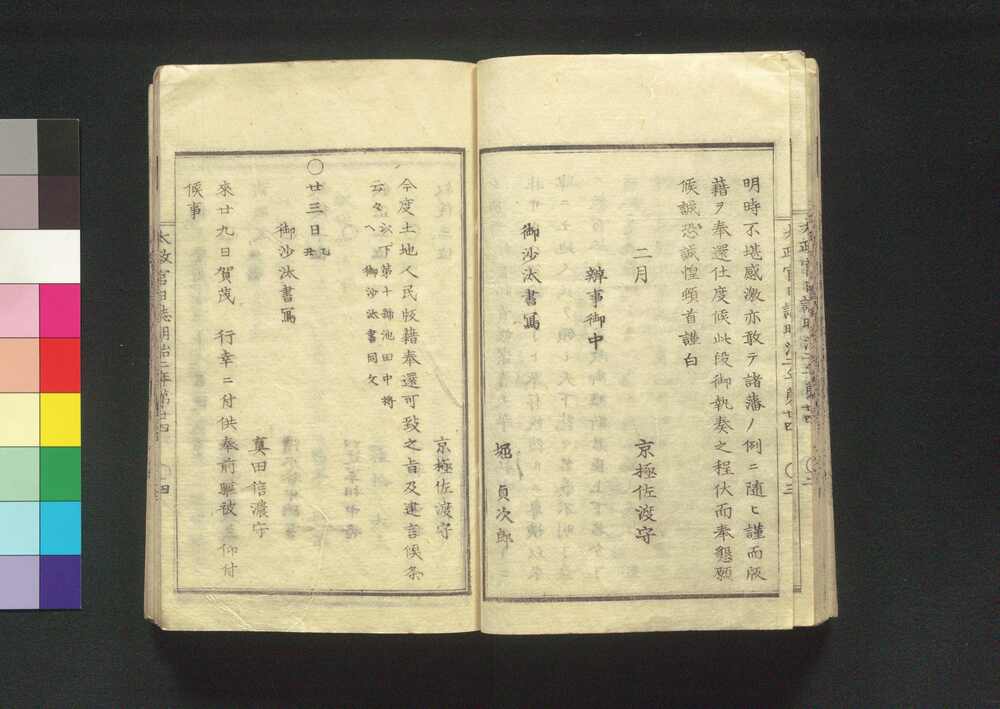 明時不堪感激亦敢テ諸藩ノ例ニ随ヒ謹而版
藉ヲ奉還仕度候此段御執奏之程伏而奉懇願
候誠恐誠惶頓首謹白
二月
京極佐渡守
辨事御中
御沙汰書寫
堀貞次郎
京極佐渡守
今度土地人民版藉奉還可致之旨及建言候条
云々以下第十號池田中将
ヘ御沙汰書同文
〇廿三日乙丑
御沙汰書寫
真田信濃守
來廿九日賀茂 行幸ニ付供奉前驅被 仰付
候事
太政官日誌明治二年第廿四 〇四